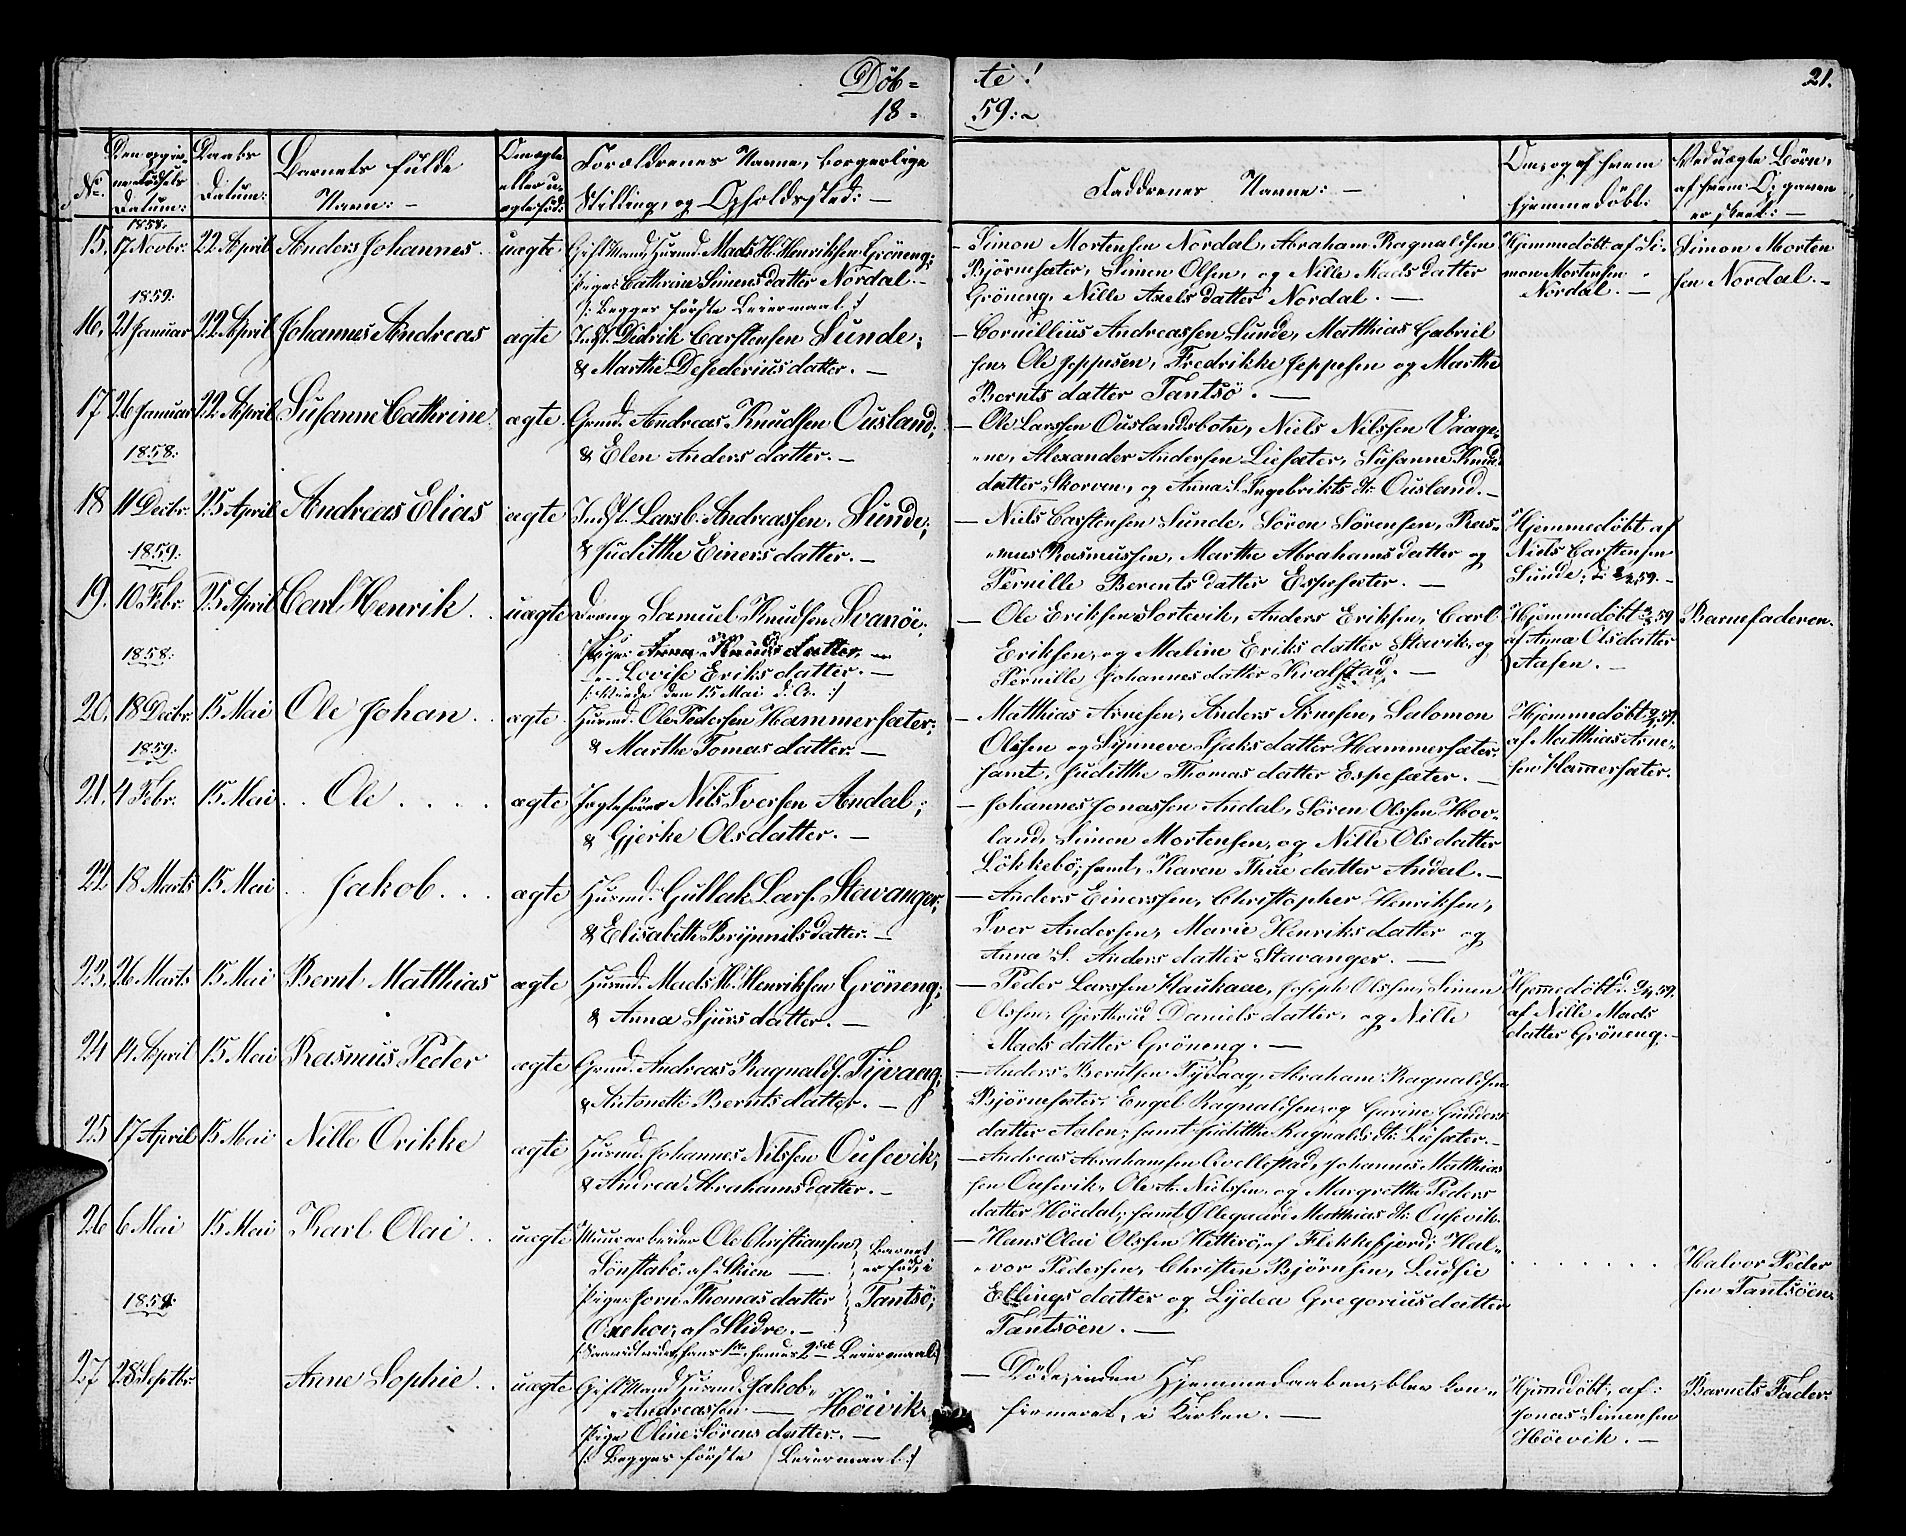 Döb= te!
21.
18= 59:~
No.
Den opgivne Födsels Datum:
Daabs Datum:
Barnets fulde Navn: -
Om ægte eller uægte föd:
Forældrenes Navne, borgerlige Stilling, og Opholdssted: -
Faddrenes Navne: -
Om, og af hvem hjemmedöbt:
Ved uægte Börn, af hvem Opgaven er skeet: -
1858.
15. 17 Novbr. 22 April. Anders Johannes. uægte Gift Mand, Husmd. Mads H. Henriksen Gröneng;
Pige: Cathrine Simens datter Nordal. -
/: Begges förste Leiermaal :/
- Simon Mortensen Nordal, Abraham Ragnaldsen
Björnesæter, Simen Olsen, og Nille Mads datter
Gröneng, Nille Axels datter Nordal. -
Hjemmedöbt af Si-
mon Mortensen
Nordal. -
Simon Morten
sen Nordal. -
1859:
16. 21 Januar 22 April Johannes Andreas ægte Indst. Didrik Carstensen Sunde;
& Marthe Desederius datter. -
- Cornillius Andreassen Sunde, Matthias Gabriel
sen, Ole Jeppesen, Fredrikke Jeppesen og Marthe
Bernts datter Tantsö. -
17 26 Januar 22 April Susanne Cathrine ægte Grmd. Andreas Knudsen Ousland;
& Elen Anders datter. -
- Ole Larssen Ouslandsbotn, Niels Nilssen Vaage-
ne, Alexander Andersen Liesæter, Susanne Knud
datter Skorven, og Anna S. Ingebrikts dtr. Ousland. -
1858:
18 11 Decbr. 25 April Andreas Elias ægte Indst. Larsb. Andreassen, Sunde;
& Judithe Einers datter. -
- Niels Carstensen Sunde, Sören Sörensen, Ras-
mus Rasmussen, Marthe Abrahams datter og
Pernille Berents datter Espesæter. -
Hjemmedöbt af
Niels Carstensen
Sunde;
1859:
19. 10 Febr. 25 April Carl Henrik. uægte Dreng Samuel Knudsen Svanöe;
Pige: Anna Knuds datter -
Lovise Eriks datter. -
/: Viede den 15 Mai d. A. :/
- Ole Eriksen Sortevik, Anders Eriksen, Carl
Eriksen, og Maline Eriks datter Stavik, og
Pernille Johannes datter Kvalstad. -
Hjemmedöbt
af Anna Olsdatter
Aasen. -
Barnefaderen.
1858:
20. 18 Decbr. 15 Mai Ole Johan. ægte Husmd. Ole Pedersen Hammersæter;
& Marthe Tomas datter. -
- Matthias Arnesen, Anders Arnesen, Salomon
Olssen og Synneve Sjaks datter Hammersæter,
samt, Judithe Thomas datter Espesæter. -
Hjemmedöbt
af Matthias Arne-
sen Hamersæter.
1859:
21. 4 Febr. 15 Mai Ole ægte Jagtefören Nils Iversen Andal;
& Gjerke Olsdatter. -
- Johannes Jonassen Andal, Sören Olssen Hov-
land, Simen Mortensen, og Nille Olsdatter
Lökkebö; samt, Karen Thue datter Andal. -
22 18 Marts 15 Mai Jakob ægte Husmd. Gullak Lars. Stavanger;
& Elisabethe Brynnils datter. -
- Anders Einerssen, Christopher Henriksen,
Iver Andersen, Marie Henriks datter og
Anna S. Anders datter Stavanger. -
23. 26 Marts 15 Mai Bernt Matthias ægte Husmd. Mads H. Henriksen Gröneng;
& Anna Sjurs datter. -
- Peder Larssen Haukaae, Joseph Olssen, Simen
Olssen, Gjertrud Daniels datter, og Nille
Mads datter Gröneng. -
Hjemedöbt
af Nille Mads
datter Gröneng. -
24 14 April 15 Mai Rasmus Peder ægte Grmd. Andreas Ragnalds. Tyvaag;
& Antonette Bernts datter. -
- Anders Berntsen Tyvaag, Abraham Ragnaldsen
Björnesæter, Engel Ragnaldsen, og Gurine Gunders
datter Aalen; samt Judithe Ragnalds dtr. Liesæter. -
25 17 April 15 Mai Nille Orikke ægte Husmd. Johannes Nilssen Ousevik;
& Andrea Abrahams datter. -
- Andreas Abrahamsen Qvellestad, Johannes Matthias
sen Ousevik, Ole A. Nielsen, og Margrethe Peders
datter Höedal; samt Öllegaard Matthias dtr. Ousevik.
26 6 Mai 15 Mai Karl Olai. uægte Muurarbeider Ole Christiansen
Sönstabö, af Skien -
Pige: Jorn Thomas datter
Oxehov, af Slidre. -
Barnet
er föd, i
Tantsö;
- Hans Olai Olssen Hetterö, af Flekkefjord; Hal-
vor Pedersen, Christen Björnsen, Ludsie
Ellings datter og Lydea Gregorius datter
Tantsöen. -
Halvor Peder
sen Tantsöen.
1859:
27 28 Septbr. Anne Sophie. uægte Gift Mand, Husmd. Jakob
Andreassen. - Höivik,
Pige Oline Sörens datter. -
/: Begges förste Leiermaal :/
- Döde, inden Hjemmedaaben, blev kon-
firmeret, i Kirken. -
Hjemdöbt, af:
Jonas Simensen
Höevik. -
Barnets Fader: